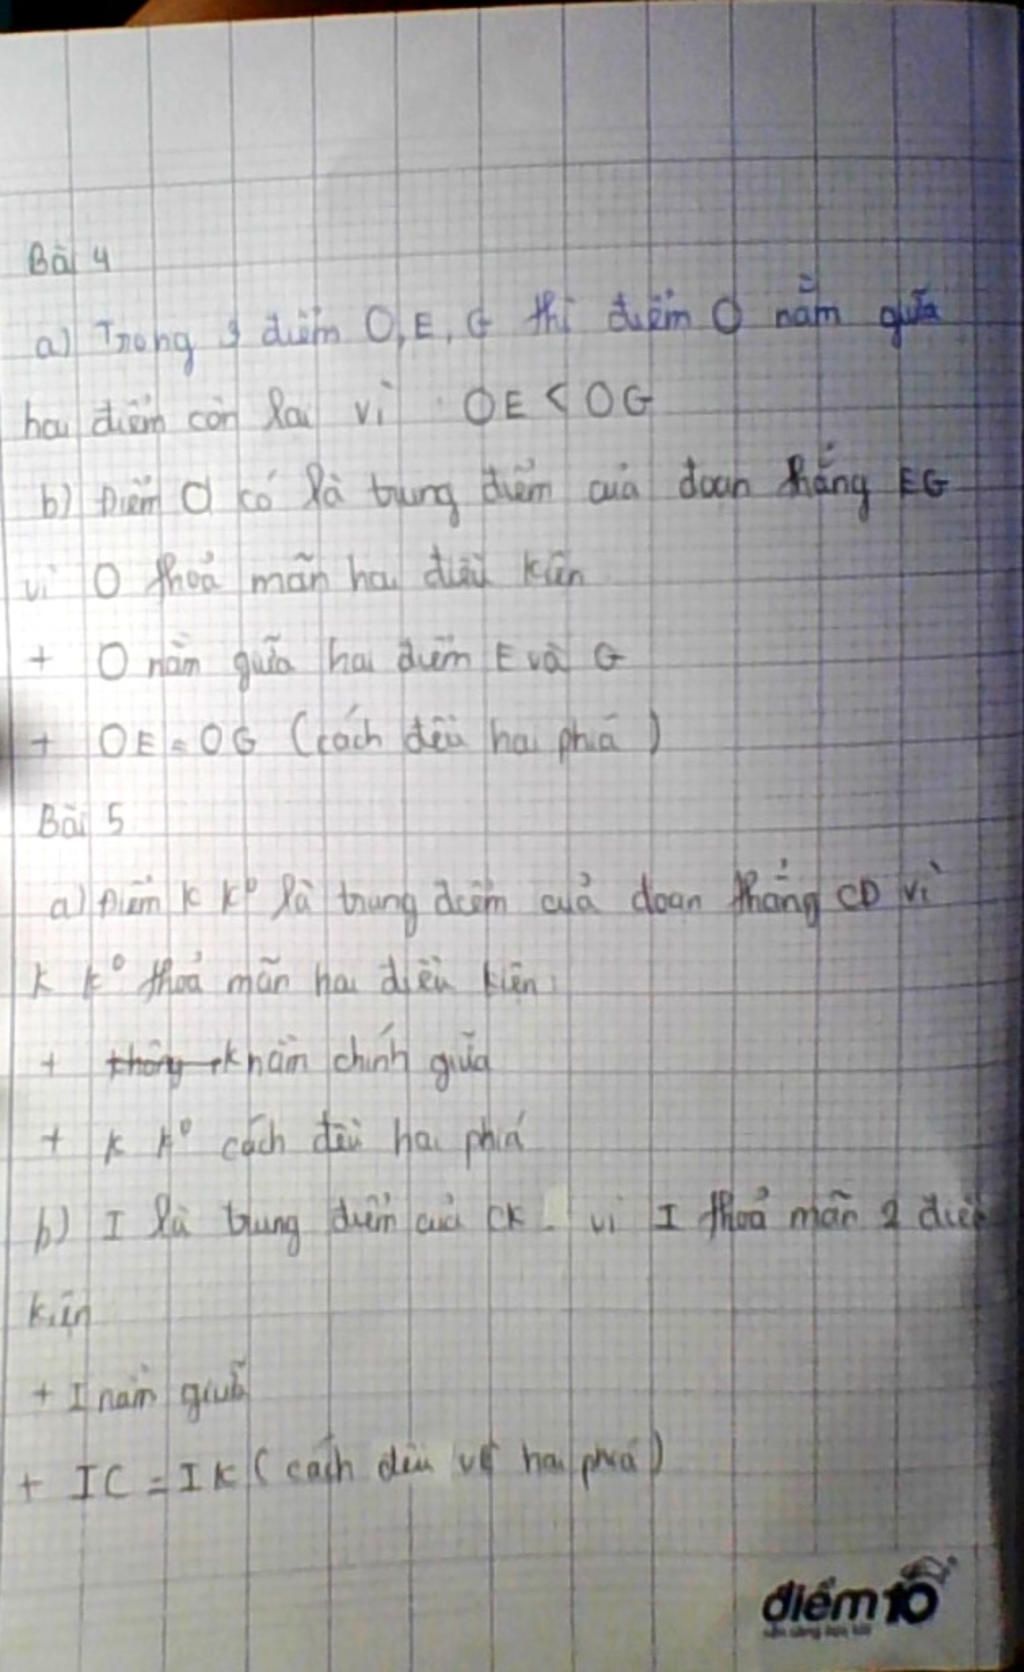 Bài 4
a) Trong 3 điểm O, E, G thì điểm O nằm giữa
hai điểm còn lại vì OE < OG
b) Điểm O có là trung điểm của đoạn thẳng EG
vì O thoả mãn hai điều kiện
+ O nằm giữa hai điểm E và G
+ OE = OG (cách đều hai phía)
Bài 5
a) Điểm K k° là trung điểm của đoạn thẳng CD vì
K k° thoả mãn hai điều kiện:
+ K nằm chính giữa
+ K k° cách đều hai phía
b) I là trung điểm của CK - vì I thoả mãn 2 điều
kiện
+ I nằm giữa
+ IC = IK (cách đều về hai phía)
điểm 10